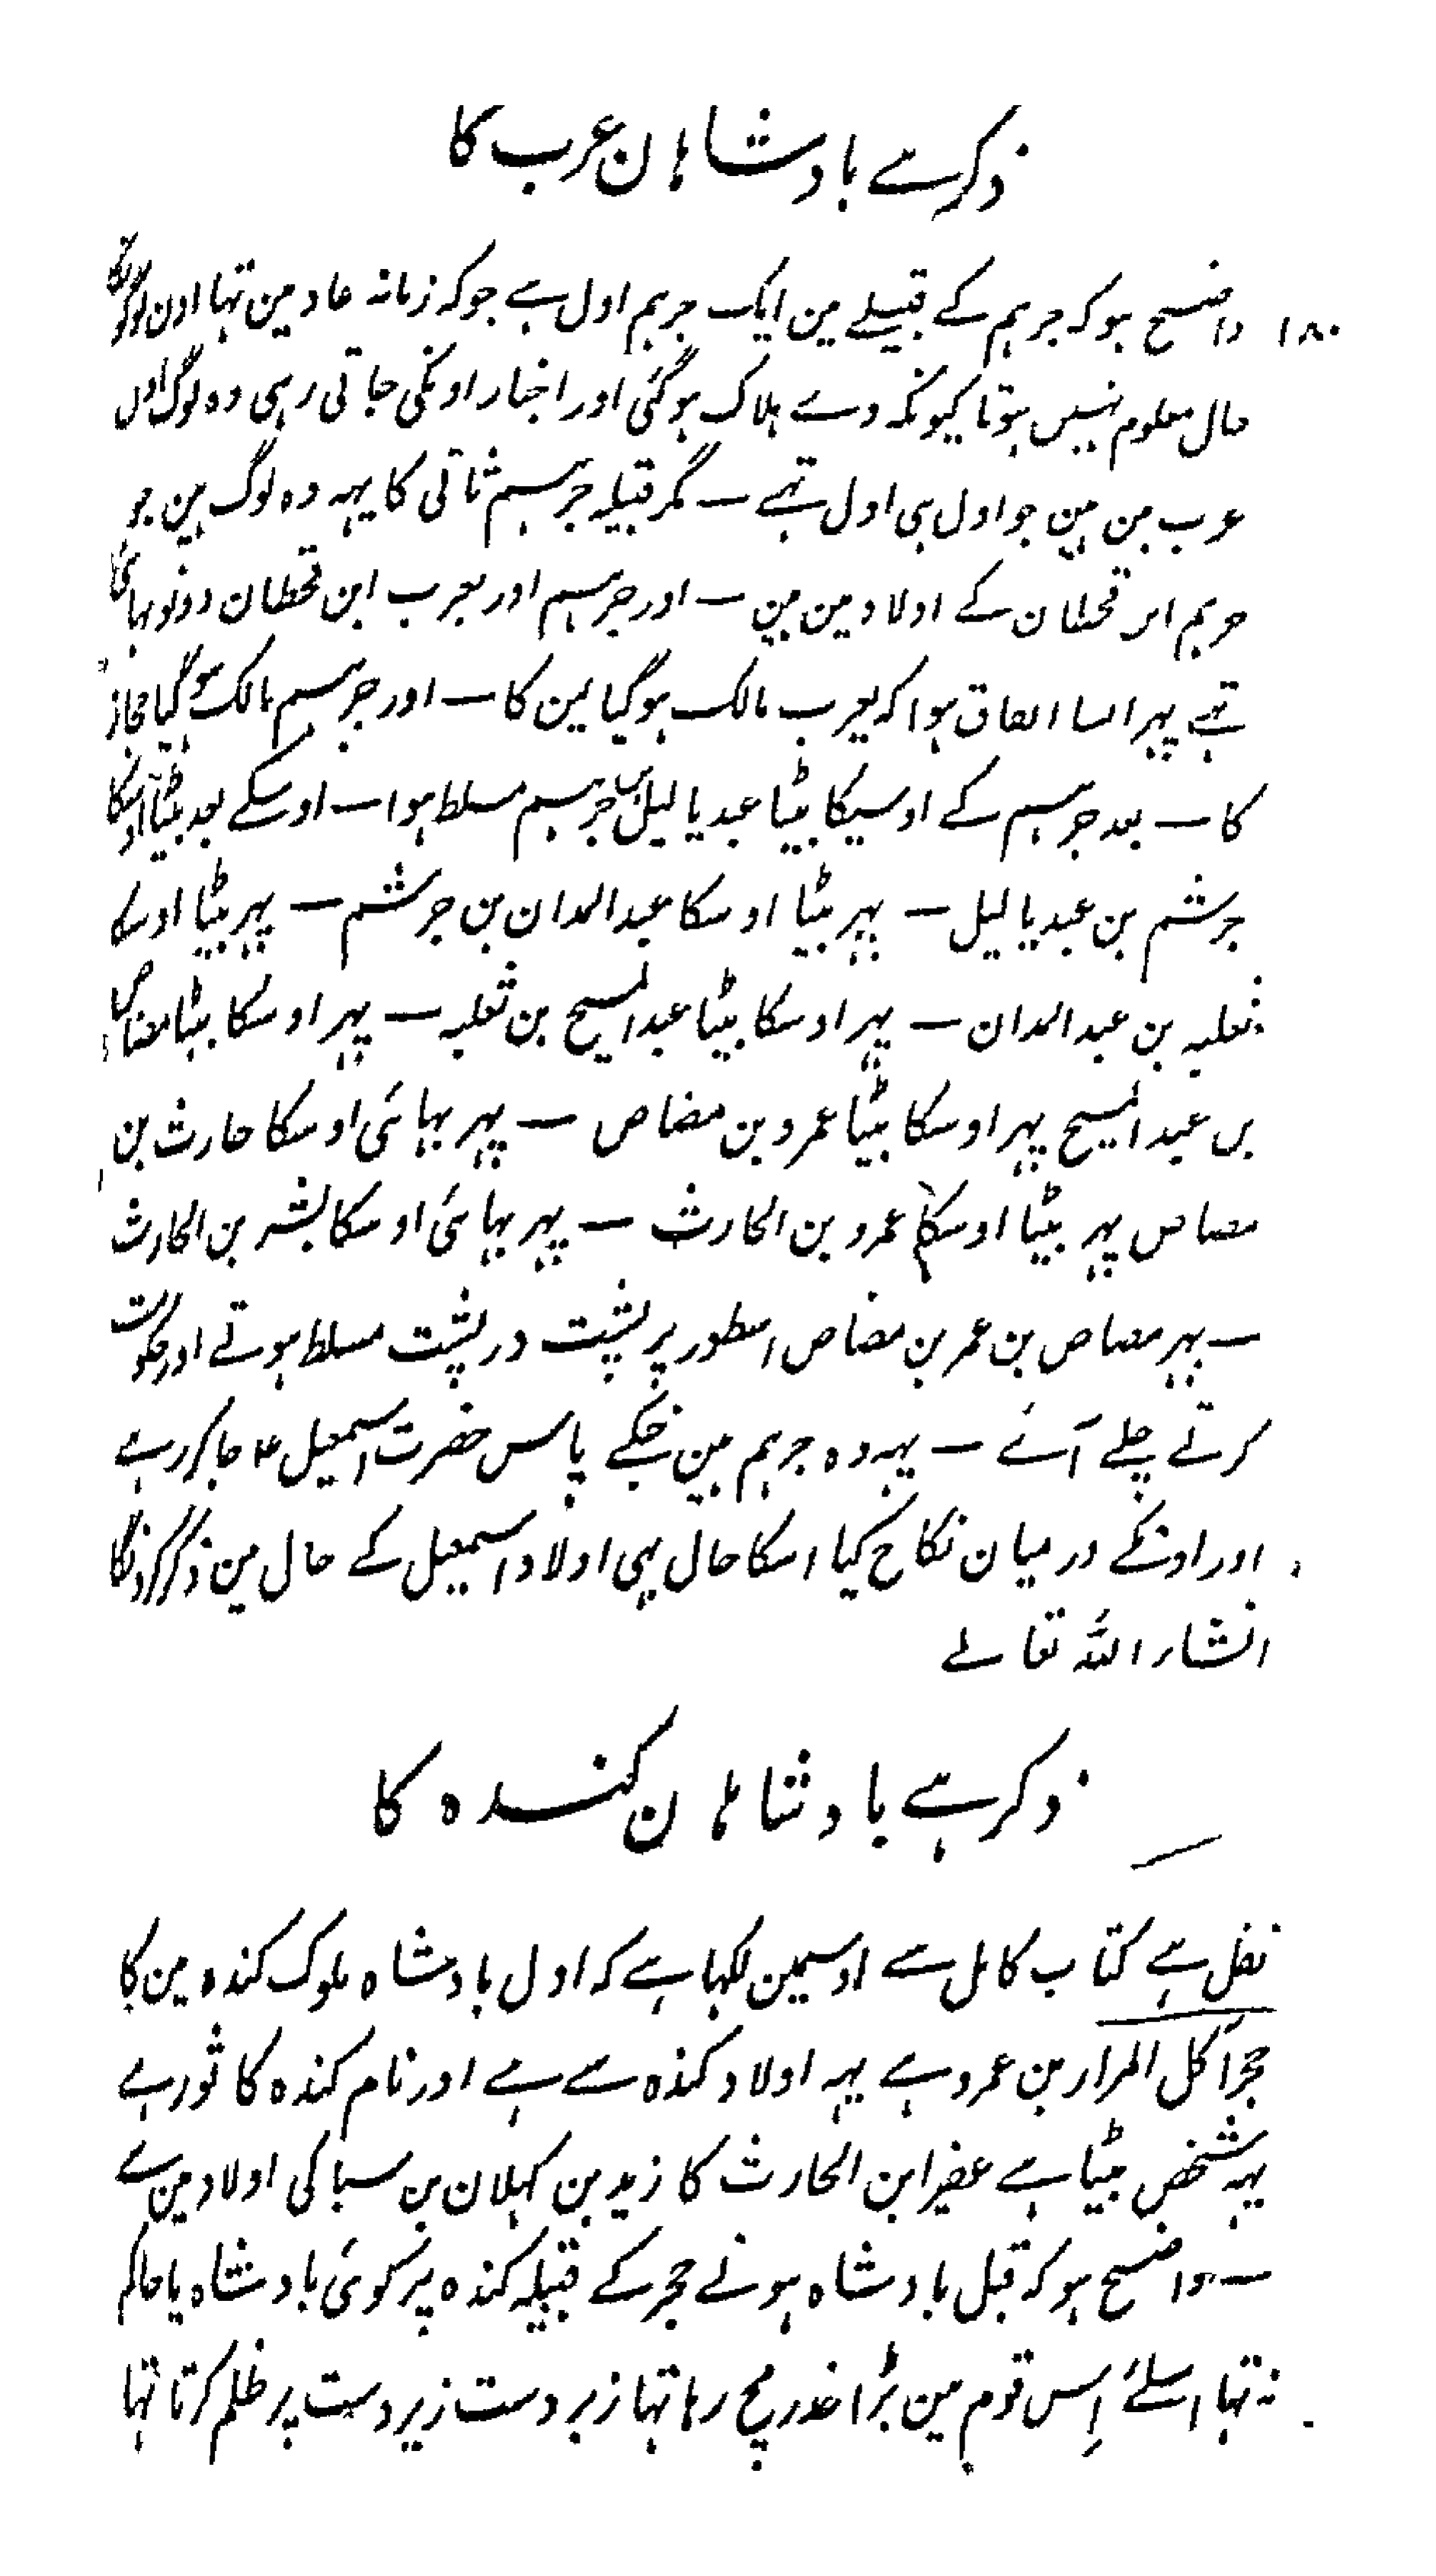 ذکر ہے بادشاہان عرب کا
۱۸۰ واضح ہو کہ جرہم کے قبیلے مین ایک جرہم اول ہے جو کہ زمانہ عاد مین تہا اون لوگونکا
حال معلوم نہیں ہوتا کیونکہ وے ہلاک ہو گئی اور اخبار اونکی جاتی رہی وہ لوگ اول
عرب مین ہین جو اول ہی اول تہے — مگر قبیلہ جرہم ثانی کا یہہ وہ لوگ ہین جو
جرہم ابن قحطان کے اولاد مین ہین — اور جرہم اور یعرب ابن قحطان دونو بہائی
تہے پہر ایسا اتفاق ہوا کہ یعرب مالک ہو گیا یمن کا — اور جرہم مالک ہو گیا حجاز
کا — بعد جرہم کے اوسیکا بیٹا عبد یا لیل بن جرہم مسلط ہوا — اوسکے بعد بیٹا اوسکا
جرشم بن عبد یا لیل — پہر بیٹا اوسکا عبد المدان بن جرشم — پہر بیٹا اوسکا
ثعلبہ بن عبد المدان — پہر اوسکا بیٹا عبد المسیح بن ثعلبہ — پہر اوسکا بیٹا مضاض
بن عبد المسیح پہر اوسکا بیٹا عمرو بن مضاض — پہر بہائی اوسکا حارث بن
مضاض پہر بیٹا اوسکا عمرو بن الحارث — پہر بہائی اوسکا بشر بن الحارث
— پہر مضاض بن عمر بن مضاض اسطور پر پشت در پشت مسلط ہوتے اور حکومت
کرتے چلے آئے — یہہ وہ جرہم ہین جنکے پاس حضرت اسمعیل ۴ جا کر رہے
اور اونکے درمیان نکاح کیا اسکا حال بہی اولاد اسمعیل کے حال مین ذکر کرونگا
انشاء اللہ تعالے
ذکر ہے بادشاہان کندہ کا
نقل ہے کتاب کامل سے اوسمین لکہا ہے کہ اول بادشاہ ملوک کندہ مین کا
حجر آکل المرار بن عمرو ہے یہہ اولاد کندہ سے ہے اور نام کندہ کا ثور ہے
یہہ شخص بیٹا ہے عفیر ابن الحارث کا زید بن کہلان بن سبا کی اولاد مین سے
— واضح ہو کہ قبل بادشاہ ہونے حجر کے قبیلہ کندہ پر کوئی بادشاہ یا حاکم
نہ تہا اسلئے اِس قوم مین بڑا غدر مچ رہا تہا زبردست زیردست پر ظلم کرتا تہا